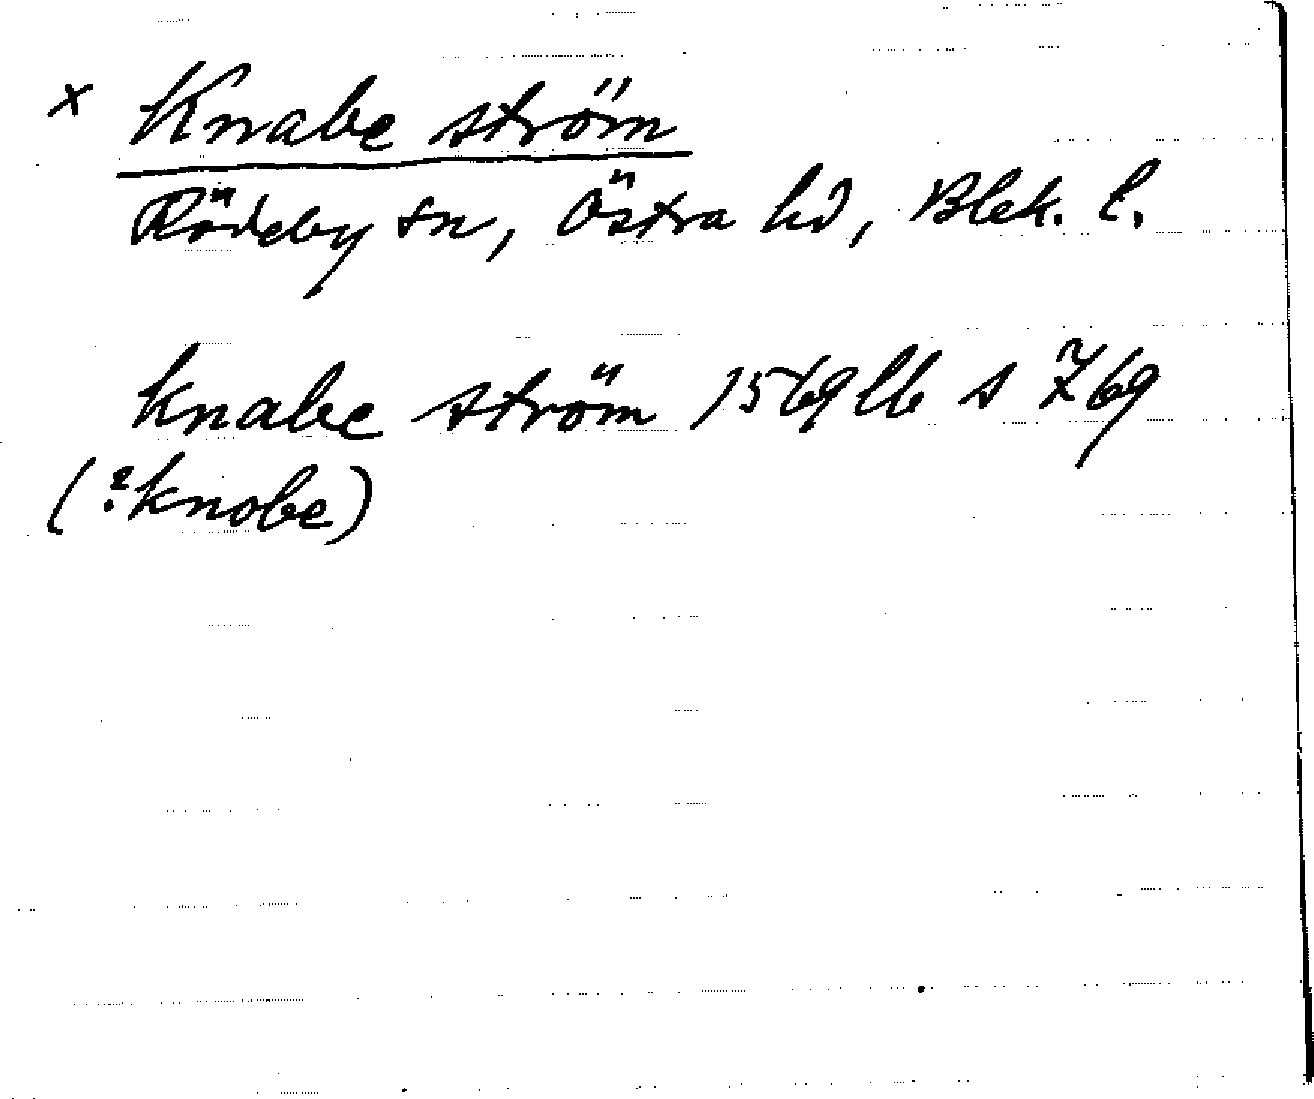 x Knabe ström
Rödeby sn, Östra hd, Blek. l.
knabe ström 1569 lb s 769
(?knobe)